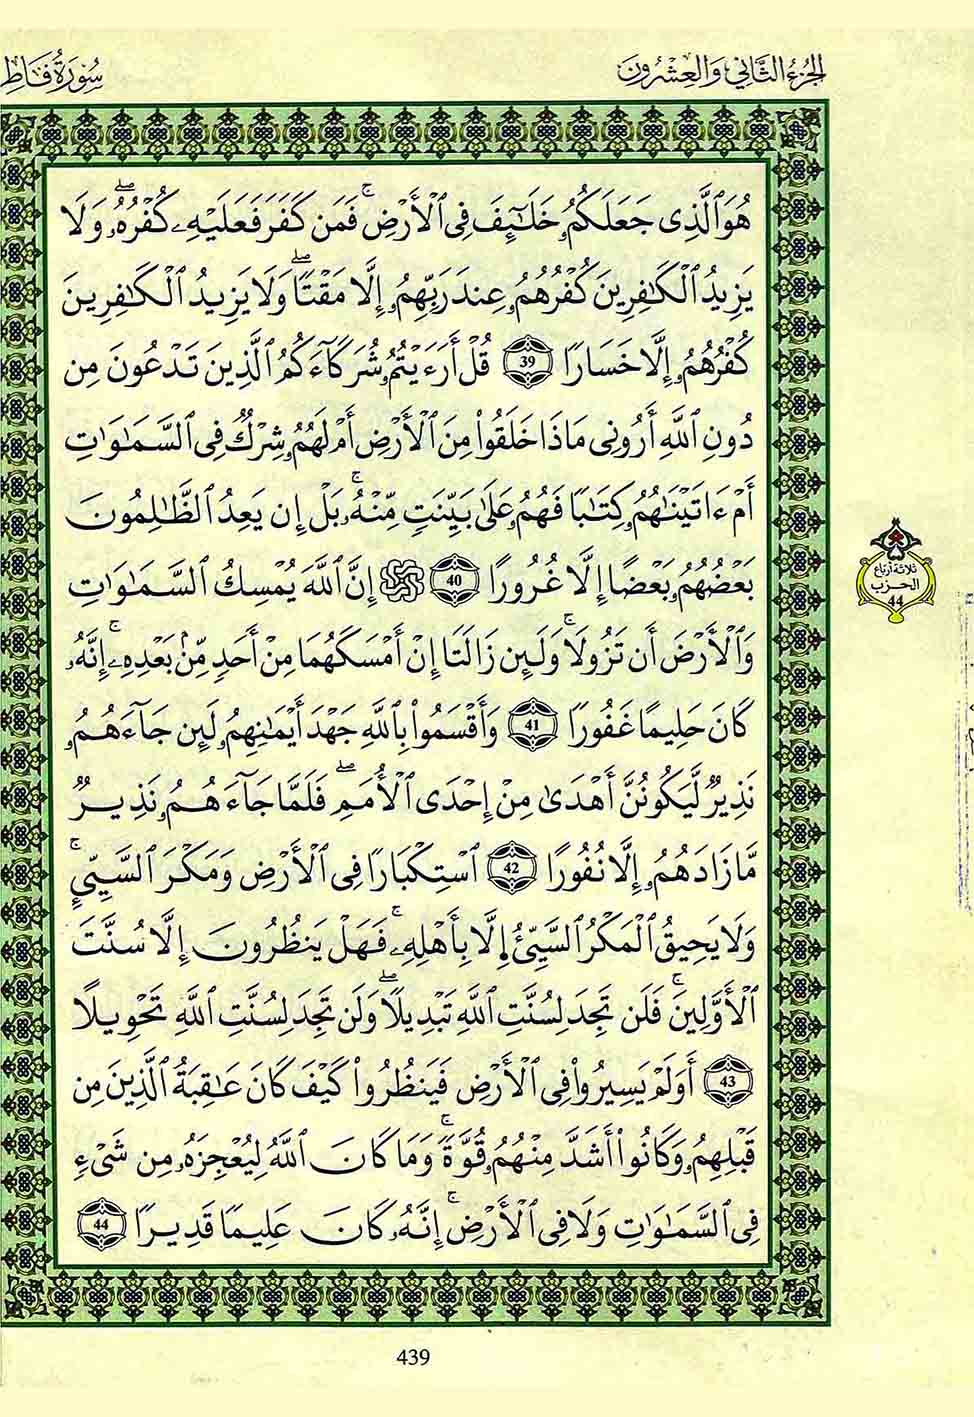 الجزء الثاني والعشرون
سورة فاط
هُوَ ٱلَّذِى جَعَلَكُمُۥ خَلَٰٓئِفَ فِى ٱلۡأَرۡضِۚ فَمَن كَفَرَ فَعَلَيۡهِۦ كُفۡرُهُۥۖ وَلَا
يَزِيدُ ٱلۡكَٰفِرِينَ كُفۡرُهُمُۥ عِندَ رَبِّهِمُۥٓ إِلَّا مَقۡتًاۖ وَلَا يَزِيدُ ٱلۡكَٰفِرِينَ
كُفۡرُهُمُۥٓ إِلَّا خَسَارًا 39 قُلۡ أَرَءَيۡتُمُۥ شُرَكَآءَكُمُ ٱلَّذِينَ تَدۡعُونَ مِن
دُونِ ٱللَّهِ أَرُونِى مَاذَا خَلَقُواْ مِنَ ٱلۡأَرۡضِ أَمۡ لَهُمُۥ شِرۡكٌ فِى ٱلسَّمَٰوَٰتِ
أَمۡ ءَاتَيۡنَٰهُمُۥ كِتَٰبًا فَهُمُۥ عَلَىٰ بَيِّنَتٍ مِّنۡهُۥۚ بَلۡ إِن يَعِدُ ٱلظَّٰلِمُونَ
بَعۡضُهُمُۥ بَعۡضًا إِلَّا غُرُورًا 40 إِنَّ ٱللَّهَ يُمۡسِكُ ٱلسَّمَٰوَٰتِ
وَٱلۡأَرۡضَ أَن تَزُولَاۚ وَلَئِن زَالَتَآ إِنۡ أَمۡسَكَهُمَا مِنۡ أَحَدٍ مِّنۢ بَعۡدِهِۦٓۚ إِنَّهُۥ
كَانَ حَلِيمًا غَفُورًا 41 وَأَقۡسَمُواْ بِٱللَّهِ جَهۡدَ أَيۡمَٰنِهِمُۥ لَئِن جَآءَهُمُۥ
نَذِيرٌ لَّيَكُونُنَّ أَهۡدَىٰ مِنۡ إِحۡدَى ٱلۡأُمَمِۖ فَلَمَّا جَآءَهُمُۥ نَذِيرٌ
مَّا زَادَهُمُۥٓ إِلَّا نُفُورًا 42 ٱسۡتِكۡبَارًا فِى ٱلۡأَرۡضِ وَمَكۡرَ ٱلسَّيِّيِٕۚ
وَلَا يَحِيقُ ٱلۡمَكۡرُ ٱلسَّيِّئُ إِلَّا بِأَهۡلِهِۦۚ فَهَلۡ يَنظُرُونَ إِلَّا سُنَّتَ
ٱلۡأَوَّلِينَۚ فَلَن تَجِدَ لِسُنَّتِ ٱللَّهِ تَبۡدِيلًاۖ وَلَن تَجِدَ لِسُنَّتِ ٱللَّهِ تَحۡوِيلًا
43 أَوَلَمۡ يَسِيرُواْ فِى ٱلۡأَرۡضِ فَيَنظُرُواْ كَيۡفَ كَانَ عَٰقِبَةُ ٱلَّذِينَ مِن
قَبۡلِهِمُۥ وَكَانُوٓاْ أَشَدَّ مِنۡهُمُۥ قُوَّةًۚ وَمَا كَانَ ٱللَّهُ لِيُعۡجِزَهُۥ مِن شَىۡءٍ
فِى ٱلسَّمَٰوَٰتِ وَلَا فِى ٱلۡأَرۡضِۚ إِنَّهُۥ كَانَ عَلِيمًا قَدِيرًا 44
ثلاثة أرباع
الحزب
44
439